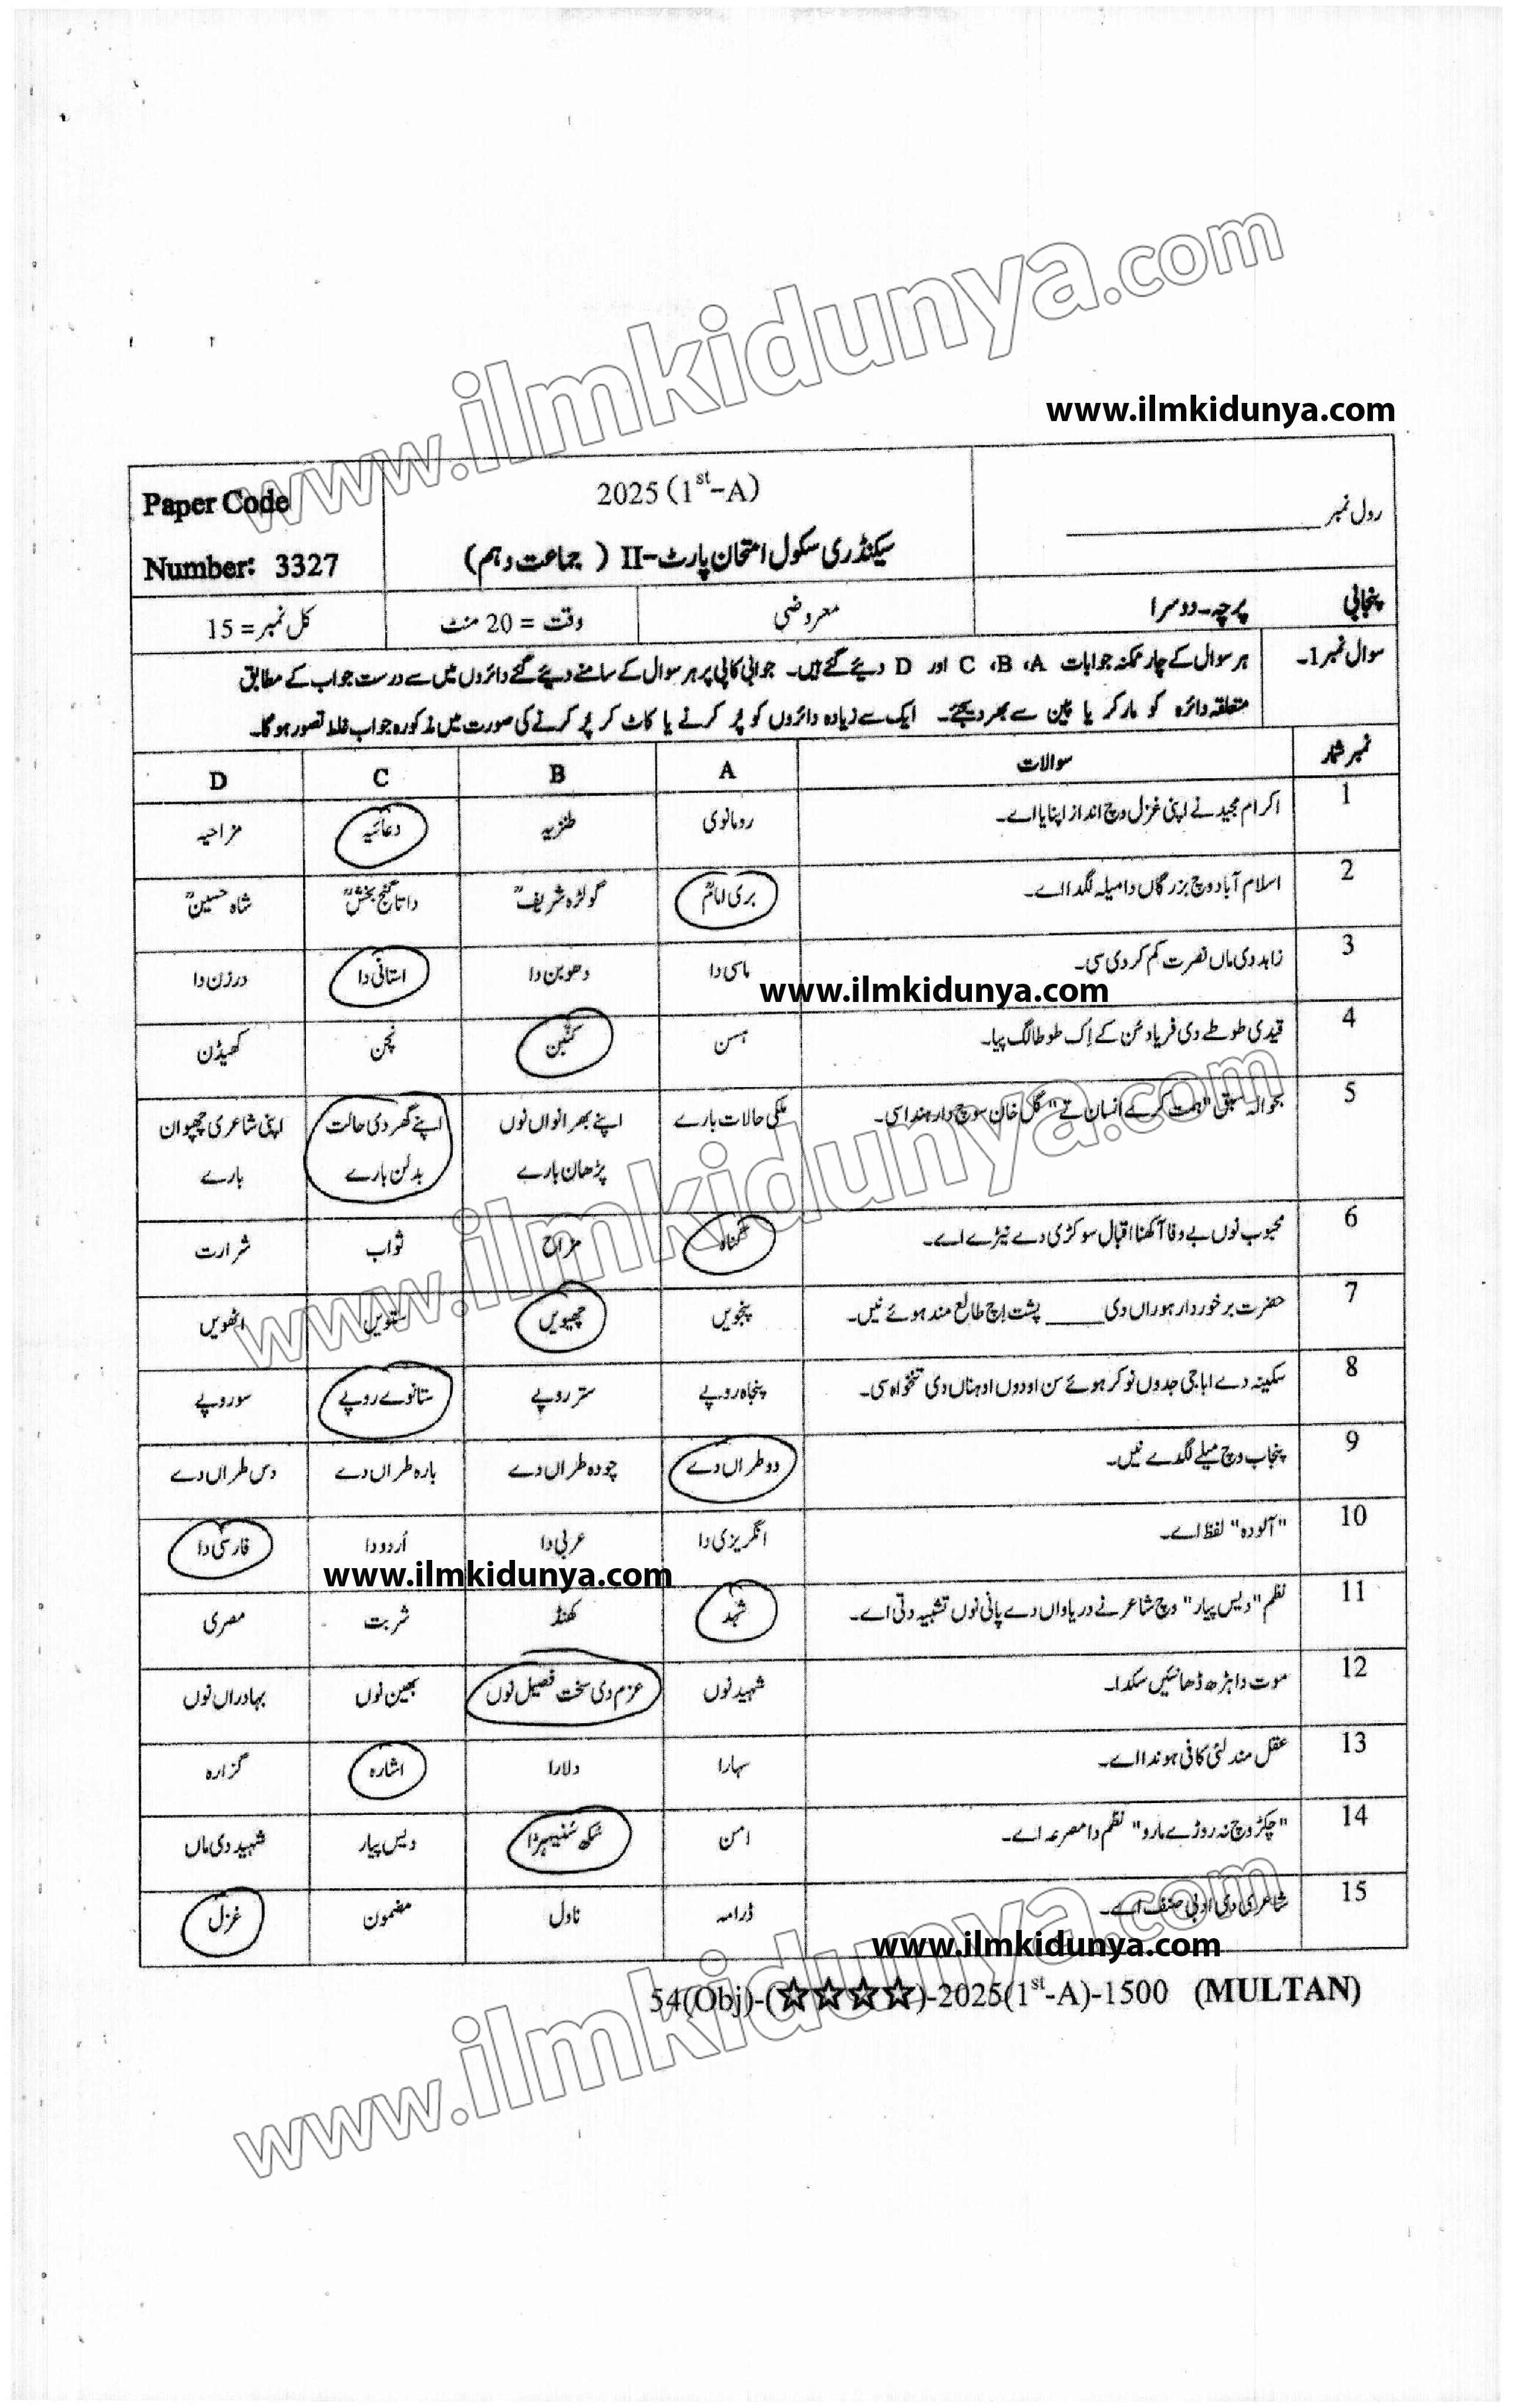 www.ilmkidunya.com
www.ilmkidunya.com
رول نمبر
2025 (1st-A)
Paper Code
سیکنڈری سکول امتحان پارٹ-II ( جماعت دہم)
Number: 3327
پنجابی پرچہ-دوسرا معروضی وقت = 20 منٹ کل نمبر = 15
سوال نمبر 1۔ ہر سوال کے چار ممکنہ جوابات A، B، C اور D دیئے گئے ہیں۔ جوابی کاپی پر ہر سوال کے سامنے دیئے گئے دائروں میں سے درست جواب کے مطابق
متعلقہ دائرہ کو مارکر یا پین سے بھر دیجئے۔ ایک سے زیادہ دائروں کو پُر کرنے یا کاٹ کر پُر کرنے کی صورت میں مذکورہ جواب غلط تصور ہوگا۔
نمبر شمار سوالات A B C D
1 اکرام مجید نے اپنی غزل وچ انداز اپنایا اے۔ رومانوی طنزیہ دعائیہ مزاحیہ
2 اسلام آباد وچ بزرگاں دا میلہ لگدا اے۔ بری امامؒ گولڑہ شریفؒ داتا گنج بخشؒ شاہ حسینؒ
3 زاہد دی ماں نصرت کم کردی سی۔ ماسی دا دھوبن دا استانی دا درزن دا
www.ilmkidunya.com
4 قیدی طوطے دی فریاد سُن کے اِک طوطا لگ پیا۔ ہسن کنبن نچن کھیڈن
5 بحوالہ سبق "ہمت کرے انسان تے" گل خان سوچ دا رہندا سی۔ ملکی حالات بارے اپنے بھرانواں نوں اپنے گھر دی حالت اپنی شاعری چھپوان
پڑھان بارے بدلن بارے بارے
www.ilmkidunya.com
6 محبوب نوں بے وفا آکھنا اقبال سوکڑی دے نیڑے اے۔ گناہ مزاح ثواب شرارت
7 حضرت برخوردار ہوراں دی ____ پشت اِچ طالع مند ہوئے نیں۔ پنجویں چھیویں ستویں اٹھویں
8 سکینہ دے اباجی جدوں نوکر ہوئے سن اودوں اوہناں دی تنخواہ سی۔ پنجاہ روپے ستر روپے ستانوے روپے سو روپے
9 پنجاب وچ میلے لگدے نیں۔ دو طراں دے چودہ طراں دے بارہ طراں دے دس طراں دے
10 "آلودہ" لفظ اے۔ انگریزی دا عربی دا اُردو دا فارسی دا
www.ilmkidunya.com
11 نظم "دیس پیار" وچ شاعر نے دریاواں دے پانی نوں تشبیہ دتی اے۔ شہد کھنڈ شربت مصری
12 موت دا ہڑھ ڈھا نئیں سکدا۔ شہید نوں عزم دی سخت فصیل نوں بھین نوں بہادراں نوں
13 عقل مند لئی کافی ہوندا اے۔ سہارا دلارا اشارہ گزارہ
14 "چکڑ وچ نہ روڑے مارو" نظم دا مصرعہ اے۔ امن سُکھ سُنیہڑا دیس پیار شہید دی ماں
15 شاعری دی ادبی صنف اے۔ ڈرامہ ناول مضمون غزل
www.ilmkidunya.com
54(Obj)-(☆☆☆☆)-2025(1st-A)-1500 (MULTAN)
www.ilmkidunya.com